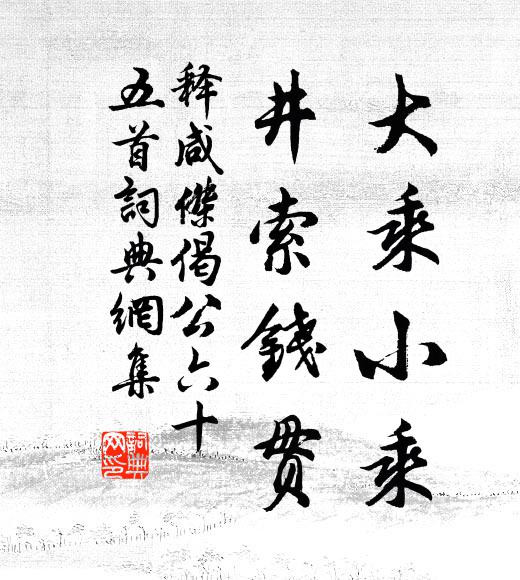 大乘小乘
井索錢贯
释咸傑偈公六十
五首詞典網集
詞典网印